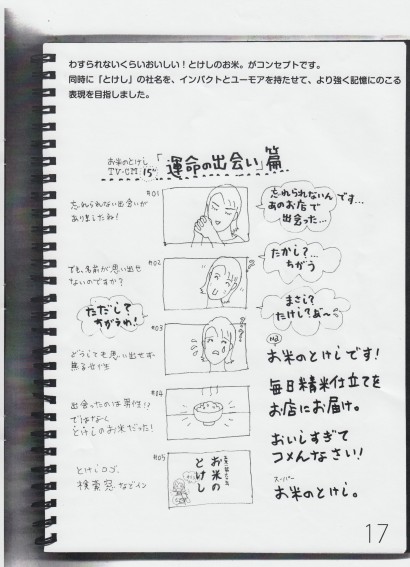 わすられないくらいおいしい！とけしのお米。がコンセプトです。
同時に「とけし」の社名を、インパクトとユーモアを持たせて、より強く記憶にのこる
表現を目指しました。
お米のとけし
TV-CM 15"
「運命の出会い」篇
#01
忘れられない出会いが
ありましたね！
忘れられないんです…
あのお店で
出会った…
#02
でも、名前が思い出せ
ないのですか？
たかし？…
ちがう
ただし？
ちがうわ！
まさし？
たけし？あ〜
#03
どうしても思い出せず
焦る女性
NA
お米のとけしです！
毎日精米仕立てを
お店にお届け。
#04
出会ったのは男性!?
ではなく
とけしのお米だった！
おいしすぎて
コメんなさい！
#05
とけしロゴ
検索窓などイン
お米の
とけし
スーパー
お米のとけし。
17